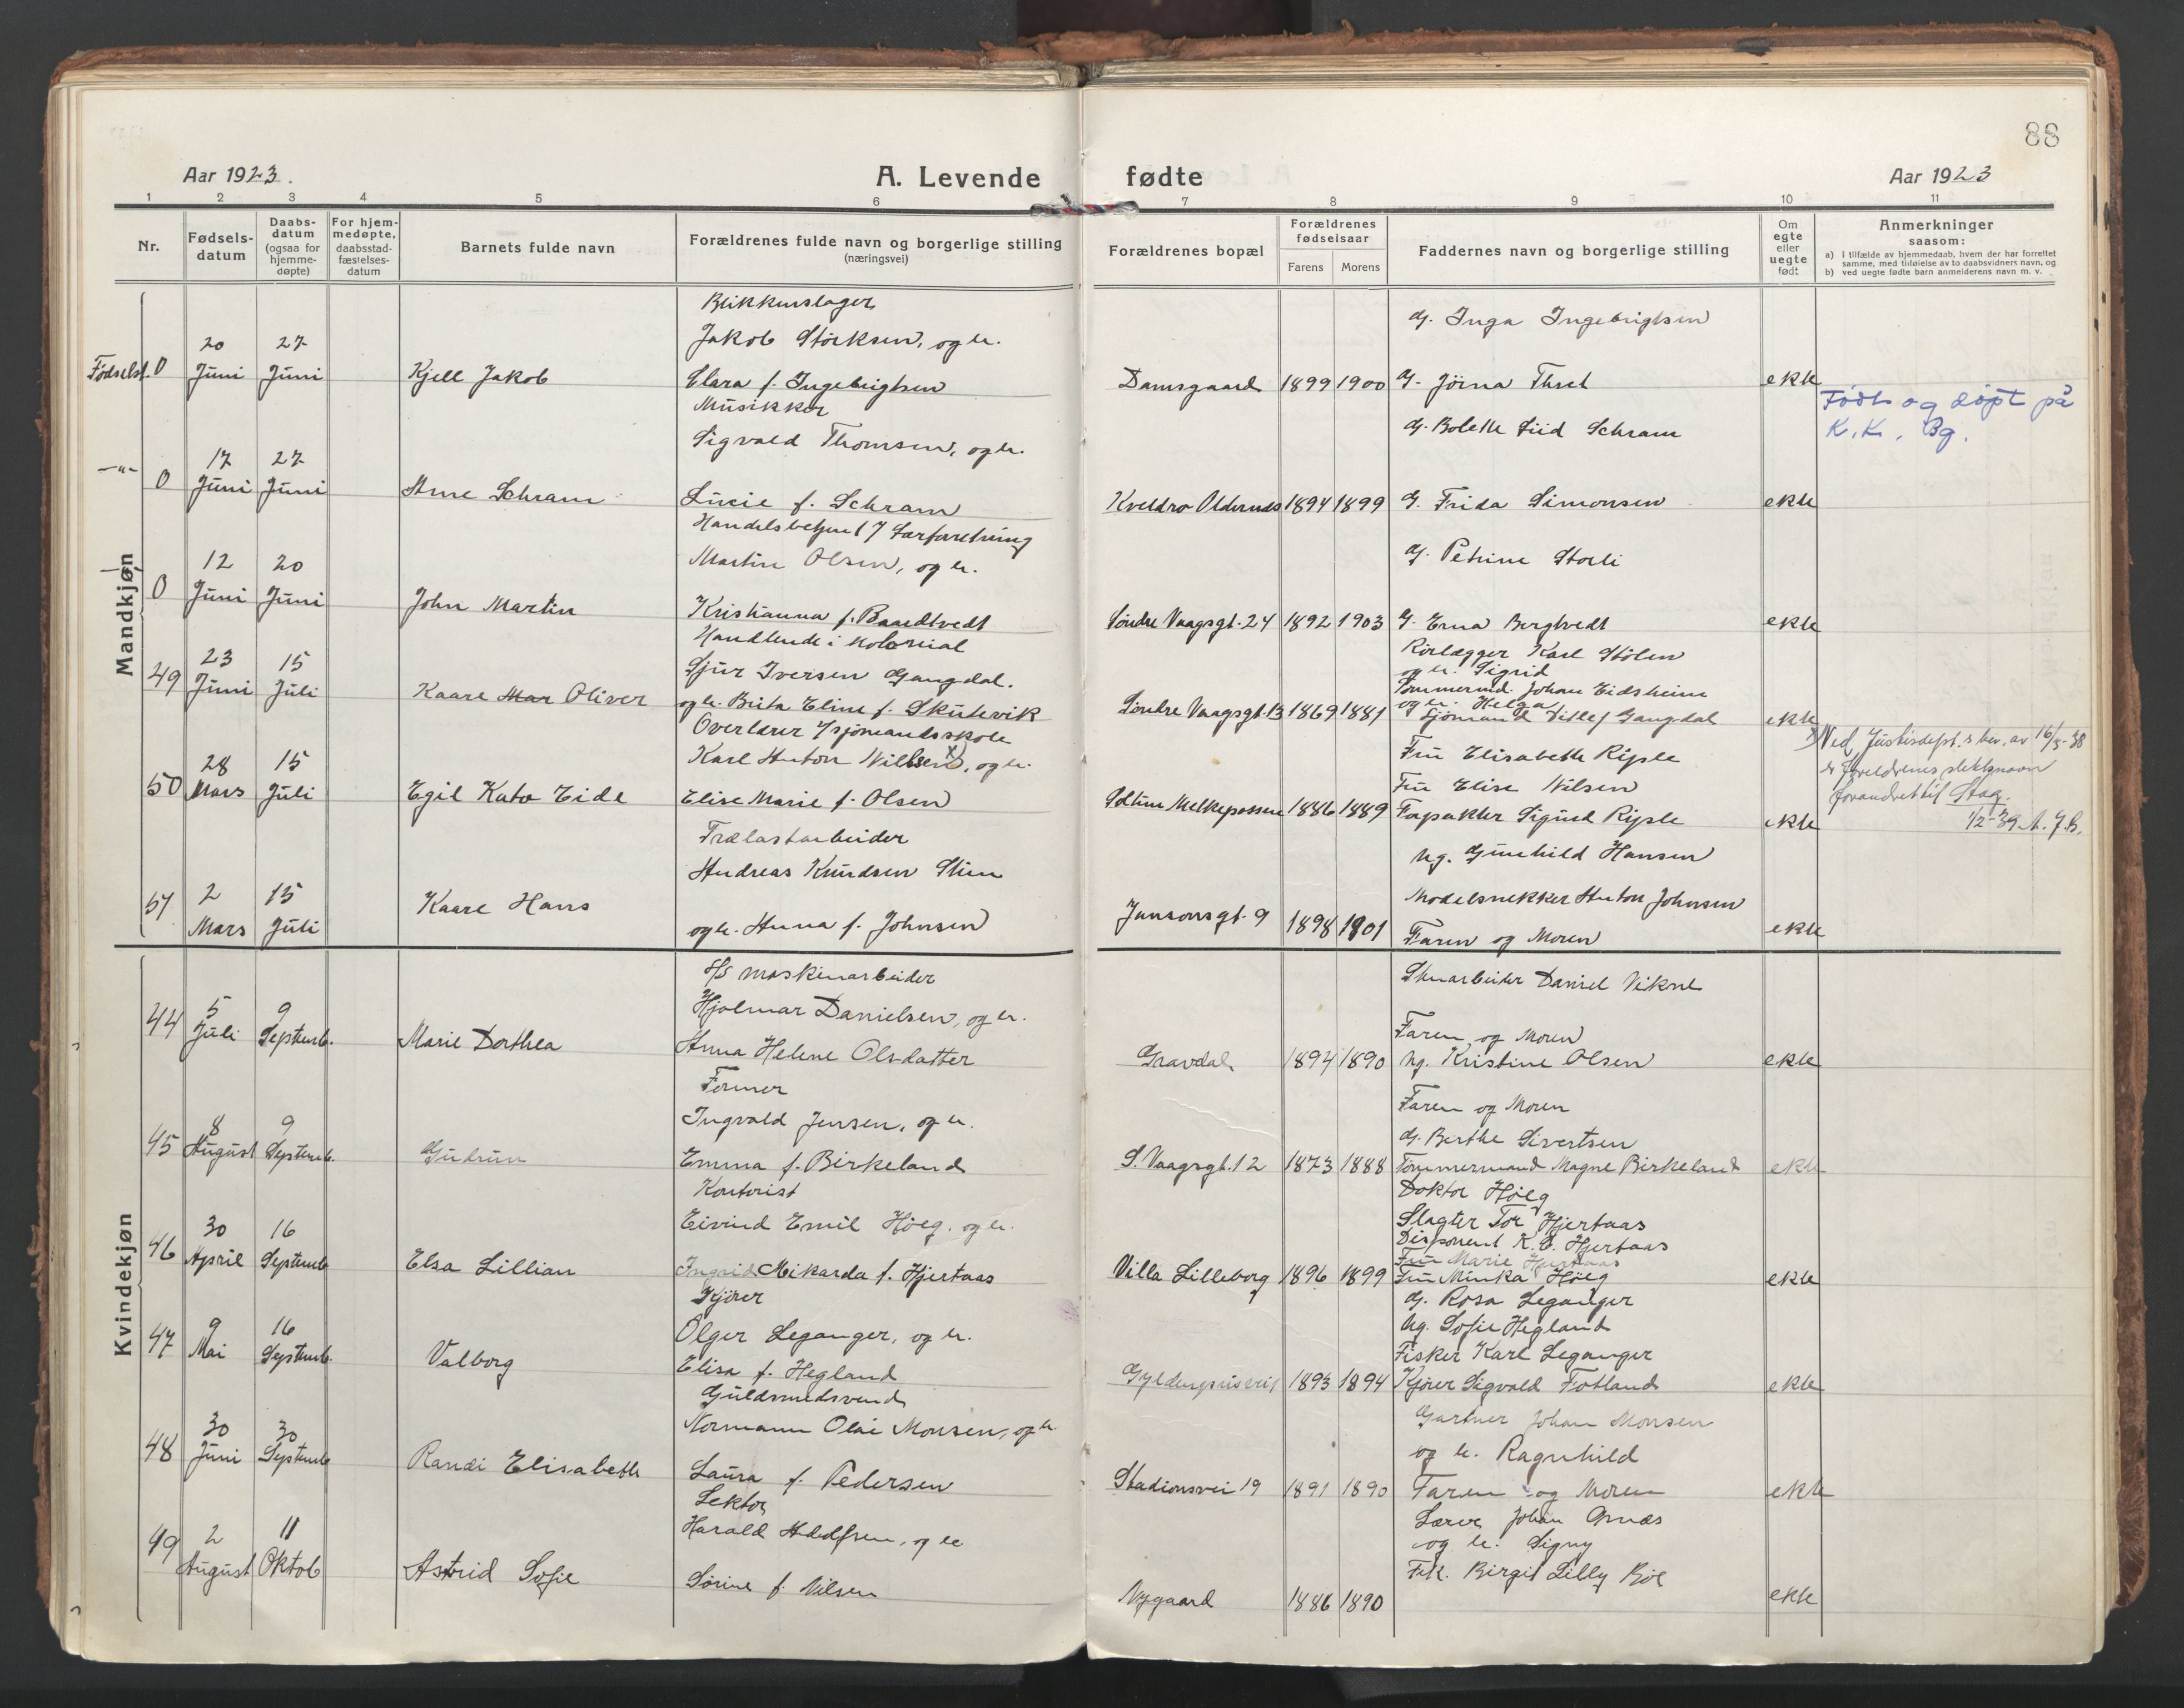 88
Aar 1923.
A. Levende fødte
Aar 1923
1 2 3 4 5 6 7 8 9 10 11
Nr.
Fødsels-
datum
Daabs-
datum
(ogsaa for
hjemme-
døpte)
For hjem-
medøpte,
daabsstad-
fæstelses-
datum
Barnets fulde navn
Forældrenes fulde navn og borgerlige stilling
(næringsvei)
Forældrenes bopæl
Forældrenes
fødselsaar
Farens Morens
Faddernes navn og borgerlige stilling
Om
egte
eller
uegte
født
Anmerkninger
saasom:
a) i tilfælde av hjemmedaab, hvem der har forrettet
samme, med tilføielse av to daabsvidners navn, og
b) ved uegte født barn anmelderens navn m. v.
Mandkjøn
Fødselst. 0
20 Juni
27 Juni
Kjell Jakob
Blikkenslager
Jakob Störksen, og h.
Clara f. Ingebrigtsen
Damsgaard
1899 1900
G. Inga Ingebrigtsen
G. Jörna
ekte
Født og døpt på
K.K. Bg.
—"— 0
17 Juni
27 Juni
Arne Schram
Musikker
Sigvald Thomsen, og h.
Lucie f. Schram
1894 1899
G. Bolette Schram
G. Frida Simonsen
ekte
0
12 Juni
20 Juni
John Martin
Martin Olsen, og h.
Kristianna f. Baardtvedt
Søndre Vaagsgt. 24
1892 1903
G. Petrine Storli
G. Erna Bergtvedt
ekte
49
23 Juni
15 Juli
Kaare Mar Oliver
Handlende i kolonial
Sjur Iversen Gangdal.
og h. Brita Eline f. Skutevik
Søndre Vaagsgt. 13
1869 1881
Rörlægger Karl Stölen
og h. Sigrid
Tømmermd. Johan Eidsheim
og h. Helga
Sjömand Ditlef Gangdal
ekte
50
28 Mars
15 Juli
Egil Kato Eide
Overlærer v/sjömandsskole
Karl Anton Nilsen x), og h.
Elise Marie f. Olsen
Soltun Melkeplassen
1886 1889
Fru Elisabeth Riple
Fru Elise Nilsen
Sigurd Riple
ekte
x) Ved Justisdept.s bev. av 16/5-38
er foreldrenes slektsnavn
forandret til Stag.
1/2-39
51
2 Mars
15 Juli
Kaare Hans
Trælastarbeider
Andreas Knudsen
og h. Anna f. Johnsen
Jansonsgt. 9
1898 1901
Ug. Gunhild Hansen
Modelsnekker Anton Johnsen
Faren og Moren
ekte
Kvindekjøn
44
5 Juli
9 Septemb.
Marie Dorthea
maskinarbeider
Hjalmar Danielsen, og h.
Anna Helene Olsdatter
Gravdal
1894 1890
Stenarbeider Daniel Vikne
Faren og Moren
Ug. Kristine Olsen
ekte
45
8 August
9 Septemb.
Gudrun
Former
Ingvald Jensen, og h.
Emma f. Birkeland
S. Vaagsgt. 12
1873 1888
Faren og Moren
G. Berthe Sivertsen
Tømmermand Magne Birkeland
ekte
46
30 April
16 Septemb
Elsa Lillian
Kontorist
Eivind Emil Höeg, og h.
Ingrid Mikarda f. Hjertaas
Villa Lilleborg
1896 1899
Doktor Höeg
Slagter Tor Hjertaas
Disponent K. E. Hjertaas
Fru Marie Hjertaas
Fru Minka Höeg
ekte
47
9 Mai
16 Septemb.
Valborg
Kjörer
Olger Leganger, og h.
Elisa f. Hegland
Gyldenprisvei
1893 1894
G. Rosa Leganger
Ug. Sofie Hegland
Fisker Karl Leganger
Kjörer Sigvald Fotland
ekte
48
30 Juni
30 Septemb
Randi Elisabeth
Guldsmedsvend
Normann Olai Monsen, og h.
Laura f. Pedersen
Stadionsvei 19
1891 1890
Gartner Johan Monsen
og h. Ragnhild
Faren og Moren
ekte
49
2 August
11 Oktob
Astrid Sofie
Lektor
Harald, og h
Sörine f. Nilsen
Nygaard
1886 1890
Lærer Johan
og h. Signy
Frk. Birgit Lilly
ekte